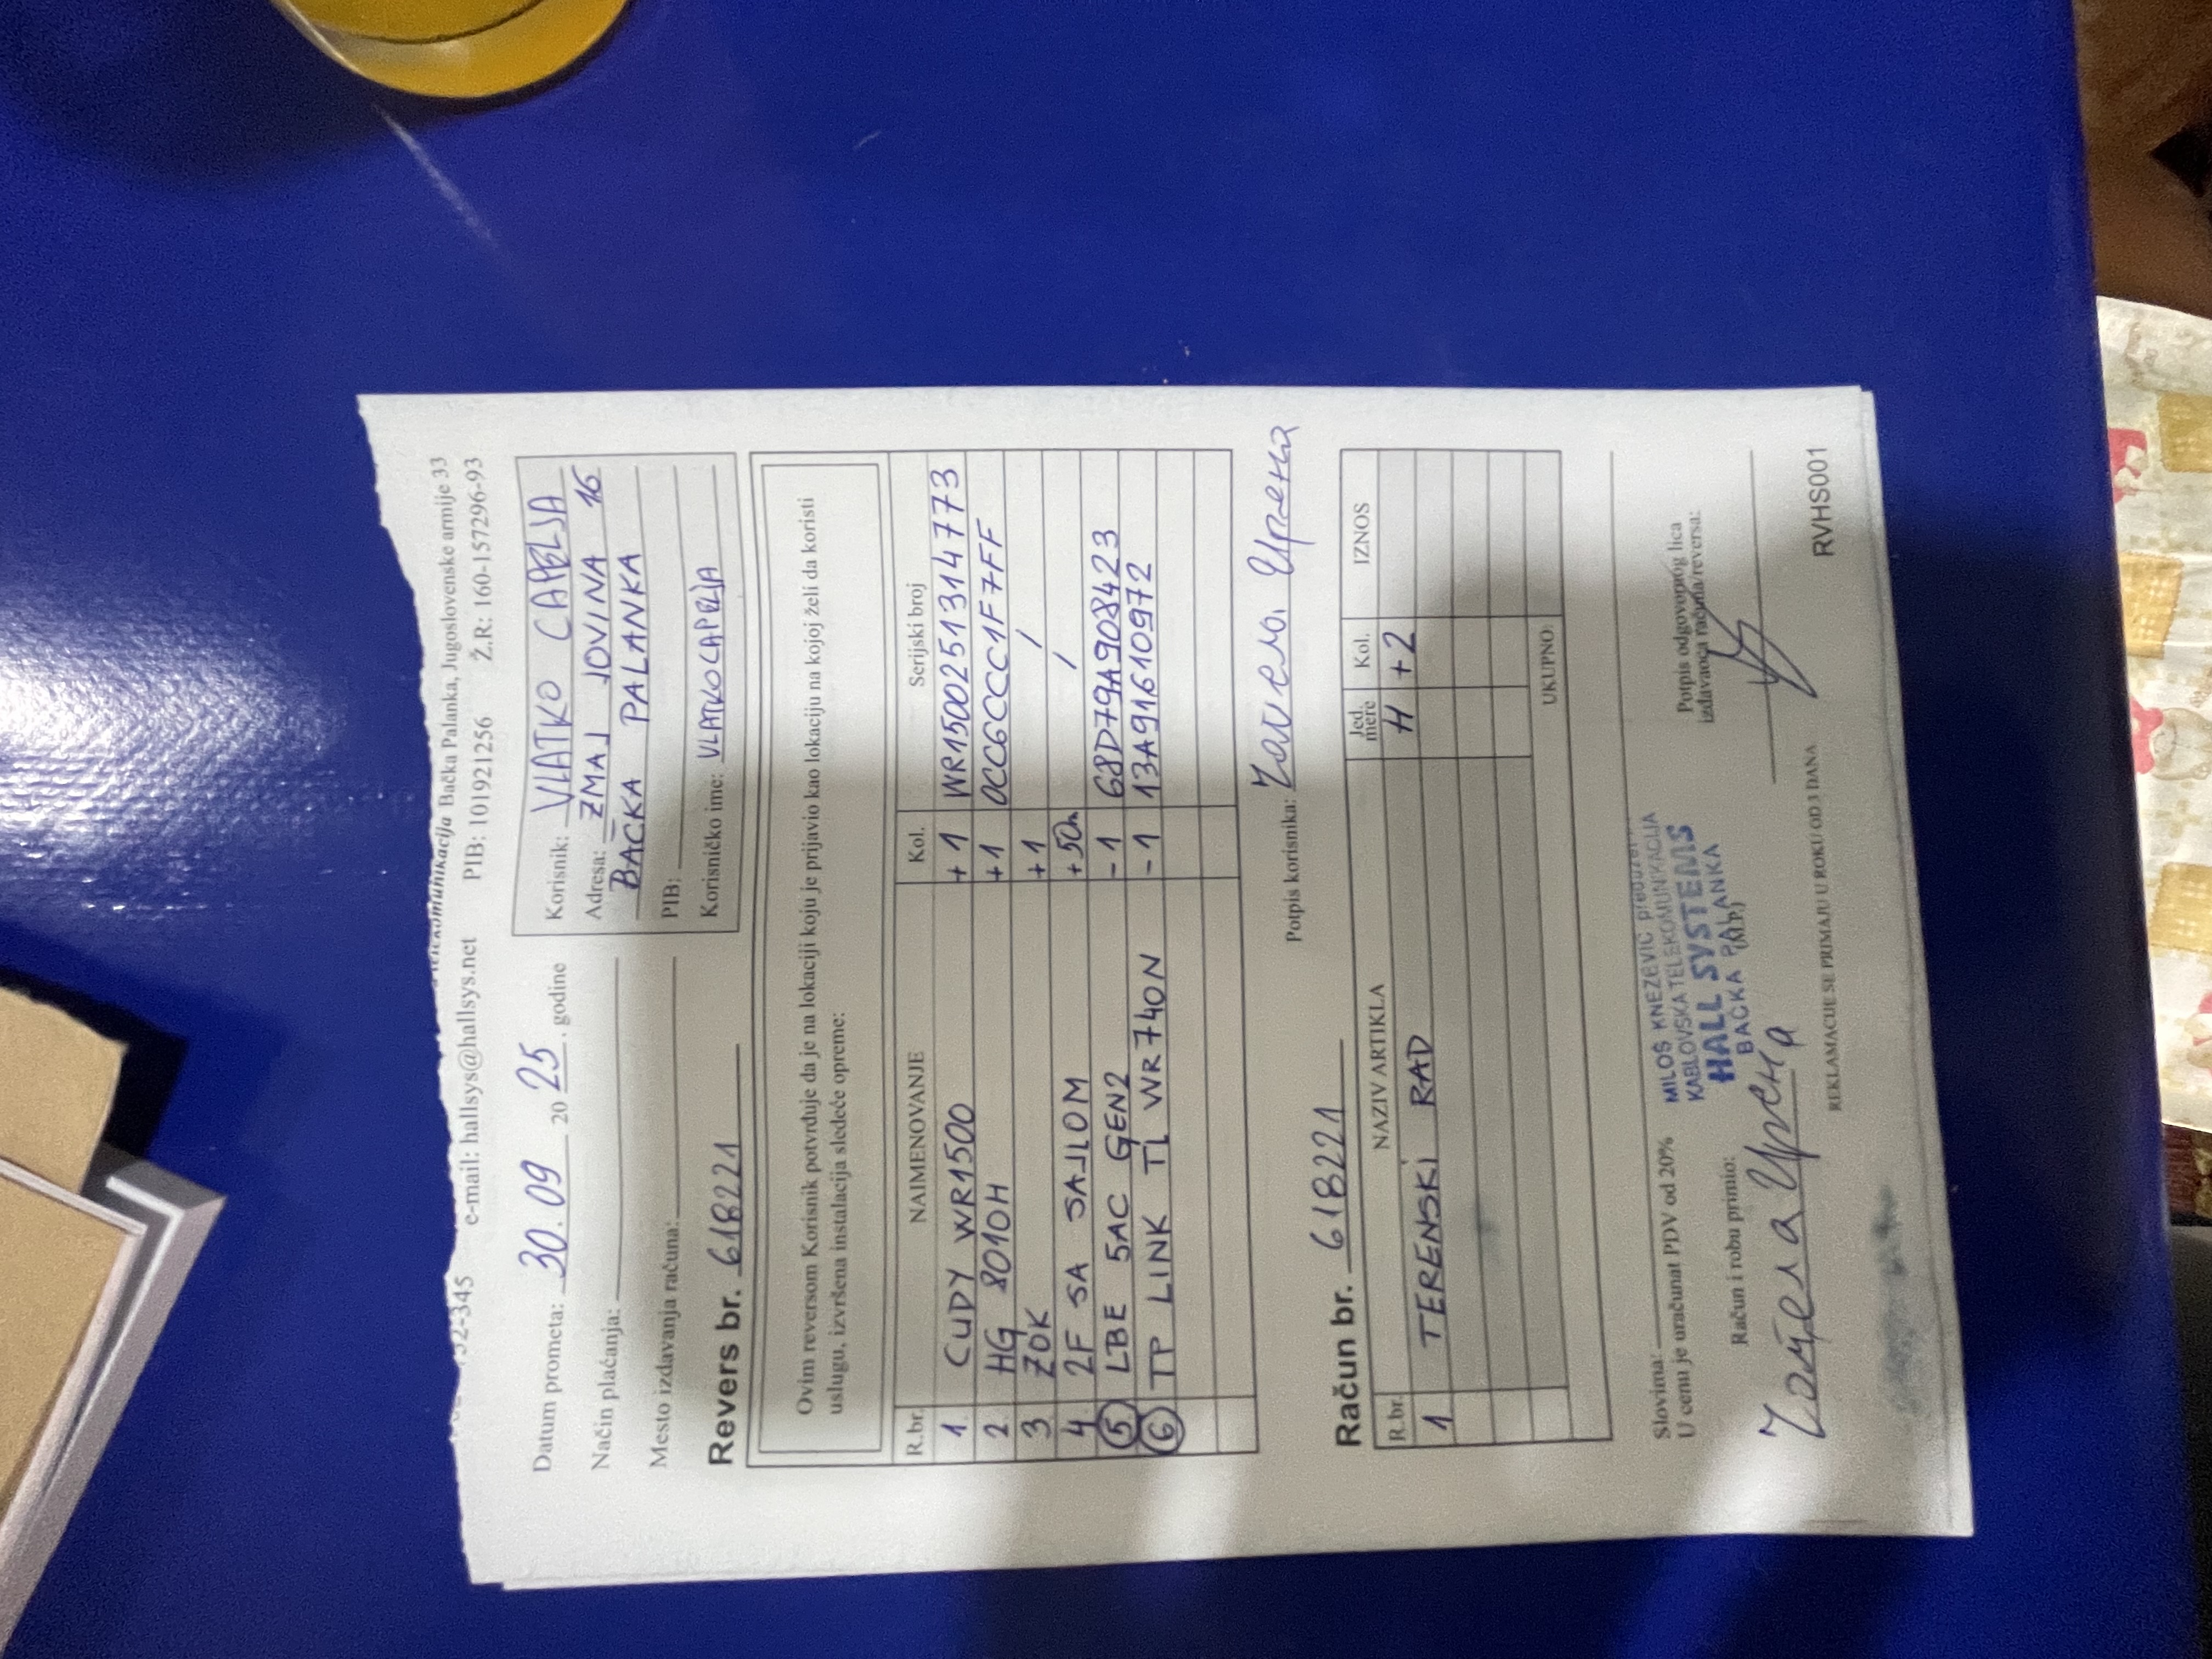 Telekomunikacija Bačka Palanka, Jugoslovenske armije 33
752-345 e-mail: hallsys@hallsys.net PIB: 101921256 Ž.R: 160-157296-93
Datum prometa: 30.09 2025. godine
Način plaćanja:
Mesto izdavanja računa:
Korisnik: VLATKO CAPELJA
Adresa: ZMAJ JOVINA 16
BAČKA PALANKA
PIB:
Korisničko ime: VLATKOCAPELJA
Revers br. 618221
Ovim reversom Korisnik potvrđuje da je na lokaciji koju je prijavio kao lokaciju na kojoj želi da koristi
uslugu, izvršena instalacija sledeće opreme:
R.br. NAIMENOVANJE Kol. Serijski broj
1. CUDY WR1500 +1 WR1500251314773
2. HG 8010H +1 0CC6CCC1F7FF
3 ZOK +1 /
4. 2F SA SAJLOM +50m /
5 LBE 5AC GEN2 -1 68D79A908423
6 TP LINK TL WR740N -1 13A9161610972
Potpis korisnika:
Račun br. 618221
R.br. NAZIV ARTIKLA Jed. mere Kol. IZNOS
1 TERENSKI RAD H +2
UKUPNO:
Slovima:
U cenu je uračunat PDV od 20%
MILOŠ KNEŽEVIĆ preduzetnik
KABLOVSKA TELEKOMUNIKACIJA
HALL SYSTEMS
BAČKA PALANKA
(M.P.)
Račun i robu primio:
Potpis odgovornog lica
izdavaoca računa/reversa:
REKLAMACIJE SE PRIMAJU U ROKU OD 3 DANA
RVHS001